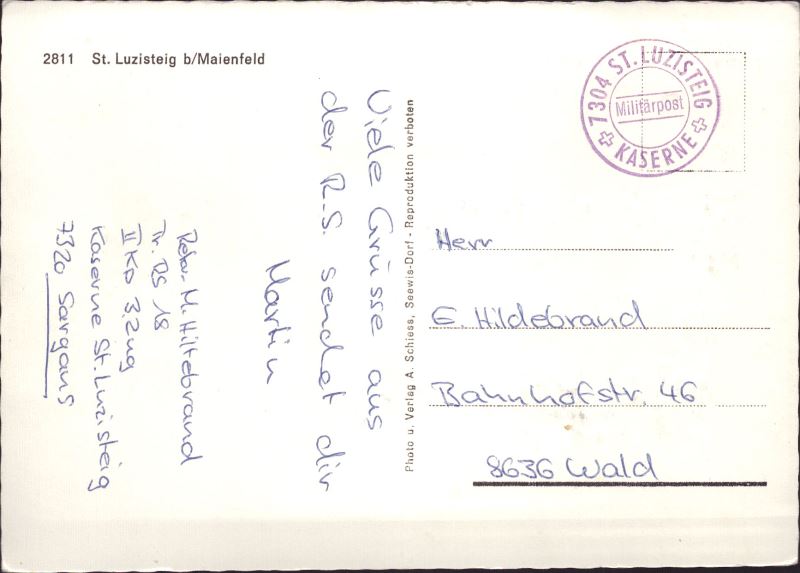 2811 St. Luzisteig b/Maienfeld
Viele Grüsse aus
der R.S. sendet dir
Martin
Rekr. M. Hiltebrand
Tr. RS 18
II KP 3. Zug
Kaserne St. Luzisteig
7320 Sargans
Photo u. Verlag A. Schiess, Seewis-Dorf - Reproduktion verboten
7304 ST. LUZISTEIG
Militärpost
KASERNE
Herr
E. Hildebrand
Bahnhofstr. 46
8636 Wald